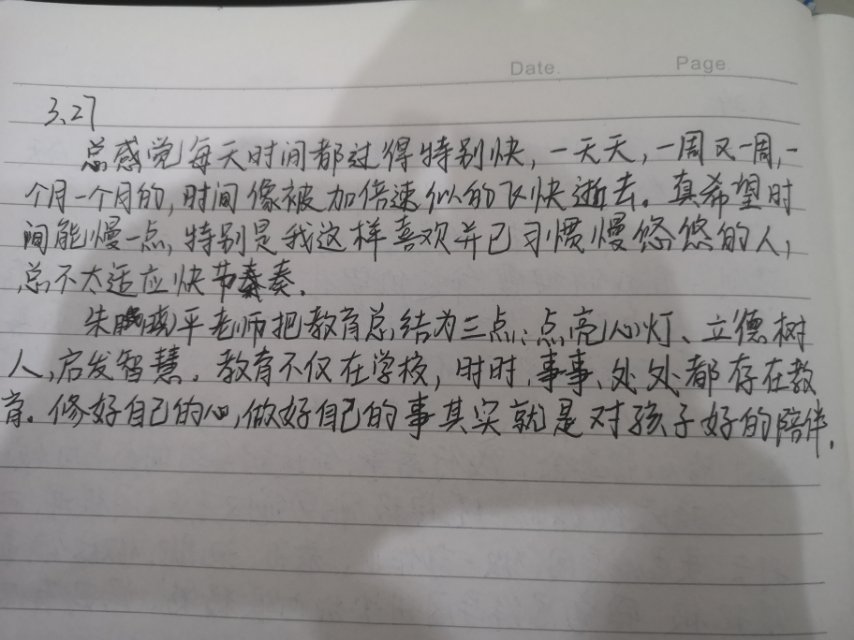 Date.
Page.
3.27
总感觉每天时间都过得特别快，一天天，一周又一周，一
个月一个月的，时间像被加倍速似的飞快逝去。真希望时
间能慢一点，特别是我这样喜欢并已习惯慢悠悠的人，
总不太适应快节奏。
朱平老师把教育总结为三点：点亮心灯、立德树
人、启发智慧。教育不仅在学校，时时、事事、处处都存在教
育。修好自己的心，做好自己的事其实就是对孩子好的陪伴。